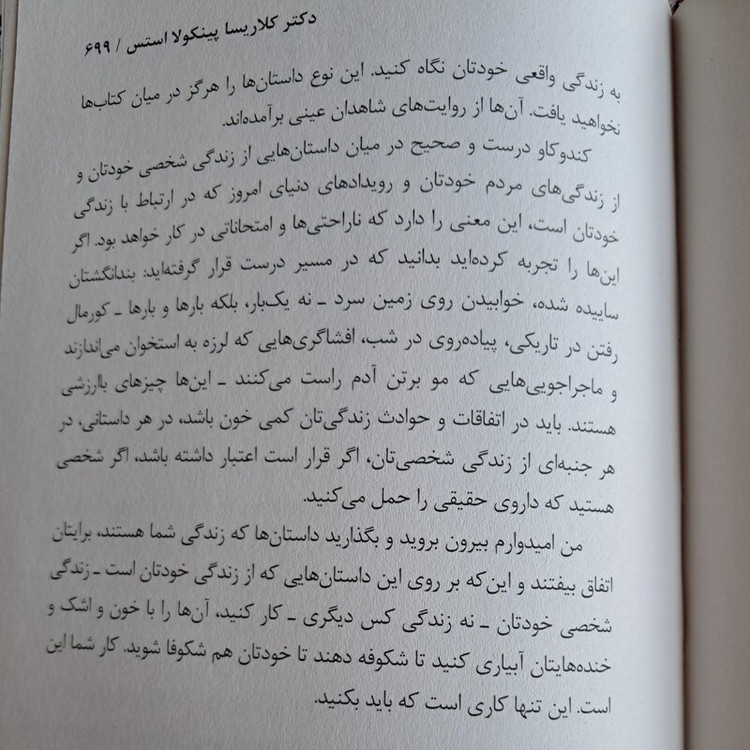 دکتر کلاریسا پینکولا استس / ۶۹۹
به زندگی واقعی خودتان نگاه کنید. این نوع داستان‌ها را هرگز در میان کتاب‌ها
نخواهید یافت. آن‌ها از روایت‌های شاهدان عینی برآمده‌اند.
کندوکاو درست و صحیح در میان داستان‌هایی از زندگی شخصی خودتان و
از زندگی‌های مردم خودتان و رویدادهای دنیای امروز که در ارتباط با زندگی
خودتان است، این معنی را دارد که ناراحتی‌ها و امتحاناتی در کار خواهد بود. اگر
این‌ها را تجربه کرده‌اید بدانید که در مسیر درست قرار گرفته‌اید: بندانگشتان
ساییده شده، خوابیدن روی زمین سرد ـ نه یک‌بار، بلکه بارها و بارها ـ کورمال
رفتن در تاریکی، پیاده‌روی در شب، افشاگری‌هایی که لرزه به استخوان می‌اندازند
و ماجراجویی‌هایی که مو برتن آدم راست می‌کنند ـ این‌ها چیزهای باارزشی
هستند. باید در اتفاقات و حوادث زندگی‌تان کمی خون باشد، در هر داستانی، در
هر جنبه‌ای از زندگی شخصی‌تان، اگر قرار است اعتبار داشته باشد، اگر شخصی
هستید که داروی حقیقی را حمل می‌کنید.
من امیدوارم بیرون بروید و بگذارید داستان‌ها که زندگی شما هستند، برایتان
اتفاق بیفتند و این‌که بر روی این داستان‌هایی که از زندگی خودتان است ـ زندگی
شخصی خودتان ـ نه زندگی کس دیگری ـ کار کنید، آن‌ها را با خون و اشک و
خنده‌هایتان آبیاری کنید تا شکوفه دهند تا خودتان هم شکوفا شوید. کار شما این
است. این تنها کاری است که باید بکنید.